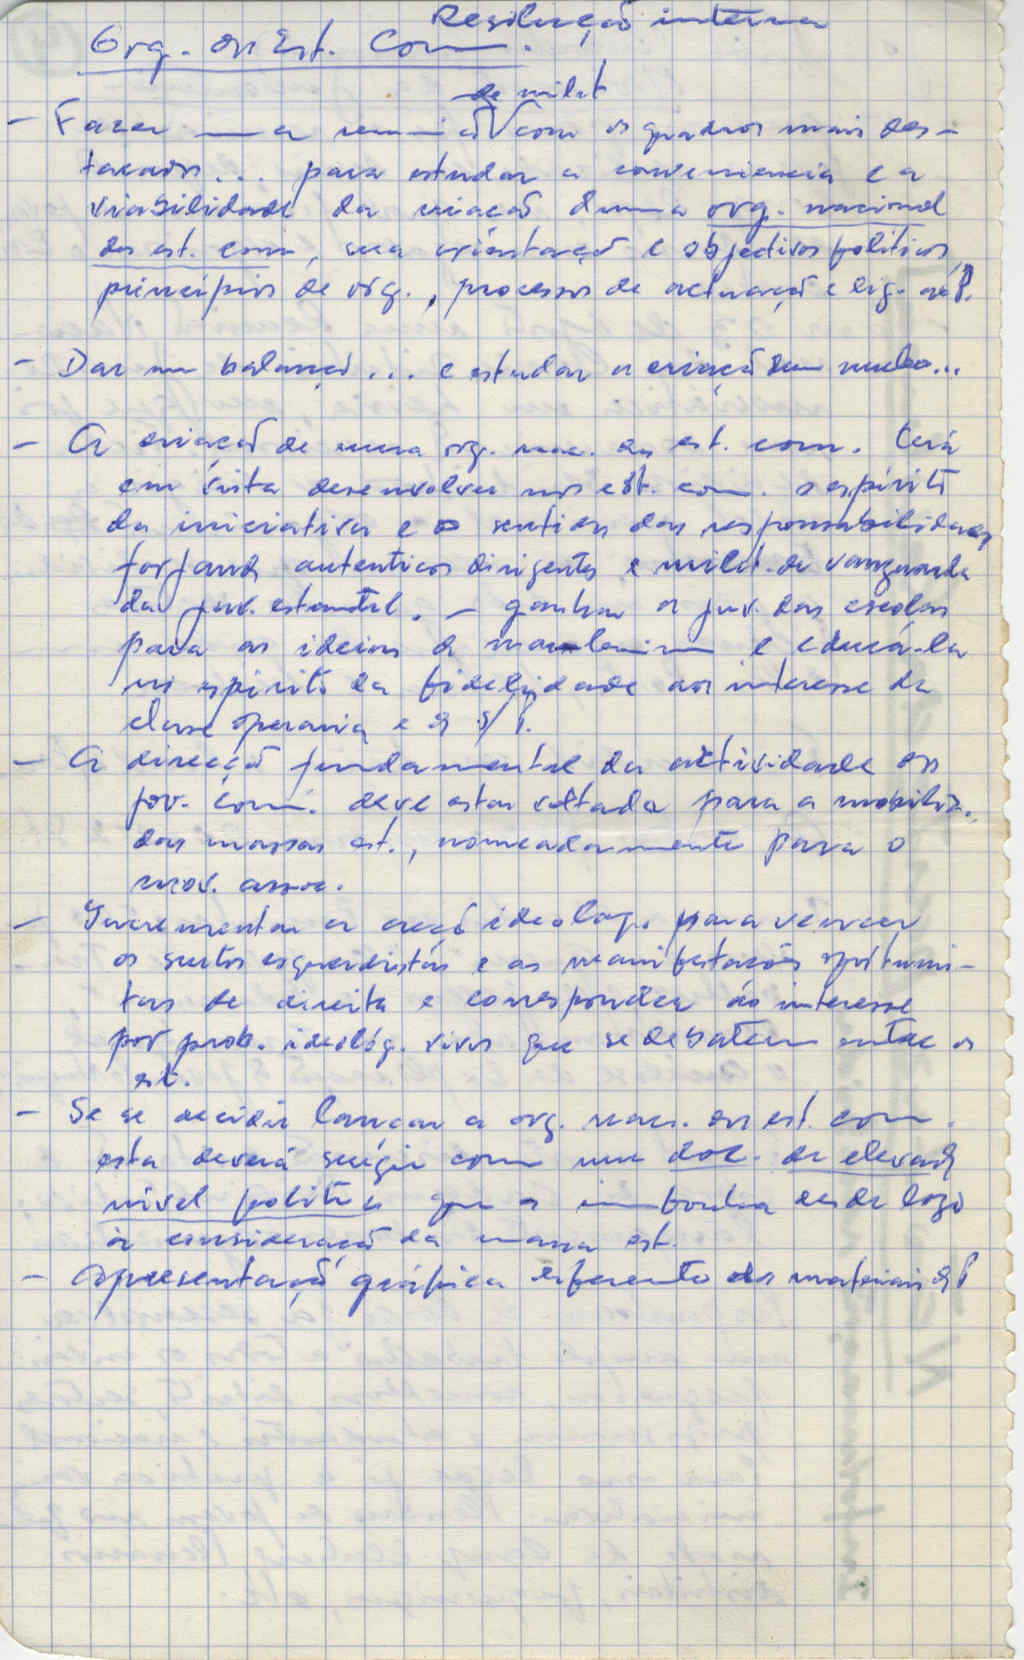 Resolução interna
Org. dos Est. Com.
de milit
- Fazer uma reunião com os quadros mais des-
tacados... para estudar a conveniencia e a
viabilidade da criação duma org. nacional
dos est. com, sua orientação e objectivos politicos,
principios de org., processos de actuação e lig. ao P.
- Dar um balanço... e estudar a criação dum nucleo...
- A criação de uma org. nac. dos est. com. terá
em vista desenvolver nos est. com. o espírito
da iniciativa e o sentido das responsabilidades
forjando autenticos dirigentes e milit. de vanguarda
da juv. estudantil. - ganhar a juv. das escolas
para as ideias do marx-leninismo e educá-la
no espirito da fidelidade aos interesse da
classe operaria e do s/ P.
- A direcção fundamental da actividade dos
jov. com. deve estar voltada para a mobiliz.
das massas est., nomeadamente para o
mov. assoc.
- Incrementar a acção ideolog. para vencer
os surtos esquerdistas e as manifestações oportunis-
tas de direita e corresponder ao interesse
por prob. ideológ. vivos que se debatem entre os
est.
- Se se decidir lançar a org. nac. dos est. com.
esta deverá surgir com um doc. de elevado
nível politico que a imponha desde logo
à consideração da massa est.
- Apresentação gráfica diferente dos materiais do P